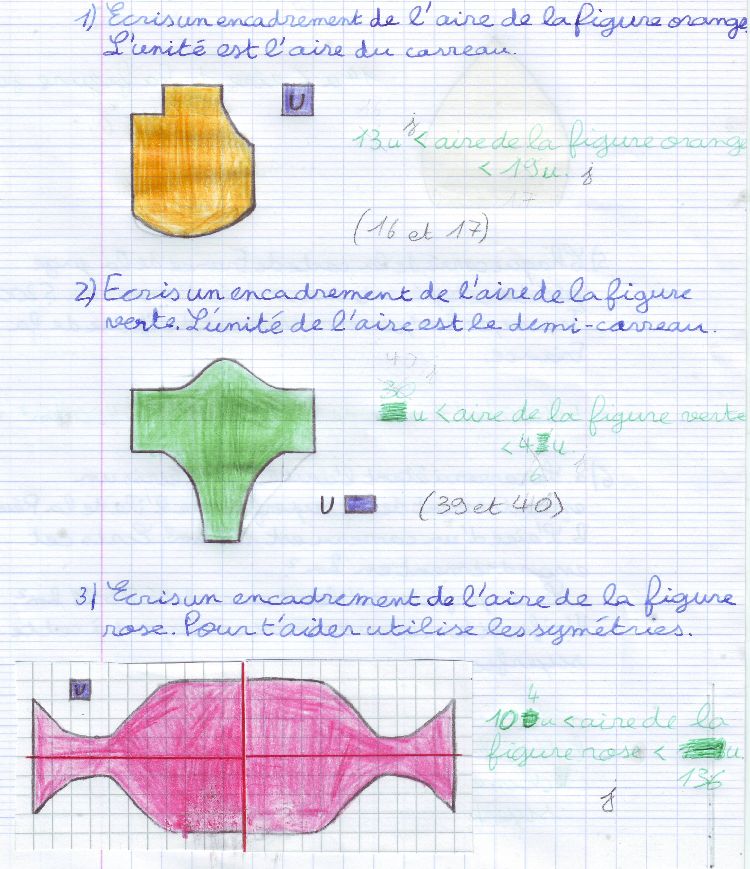 1) Ecris un encadrement de l'aire de la figure orange.
L'unité est l'aire du carreau.
U
13u < aire de la figure orange
< 19u.
17
(16 et 17)
2) Ecris un encadrement de l'aire de la figure
verte. L'unité de l'aire est le demi-carreau.
40
30
u < aire de la figure verte
< 4 u.
16
U
(39 et 40)
3) Ecris un encadrement de l'aire de la figure
rose. Pour t'aider utilise les symétries.
U
4
10 u < aire de la
figure rose < u.
136